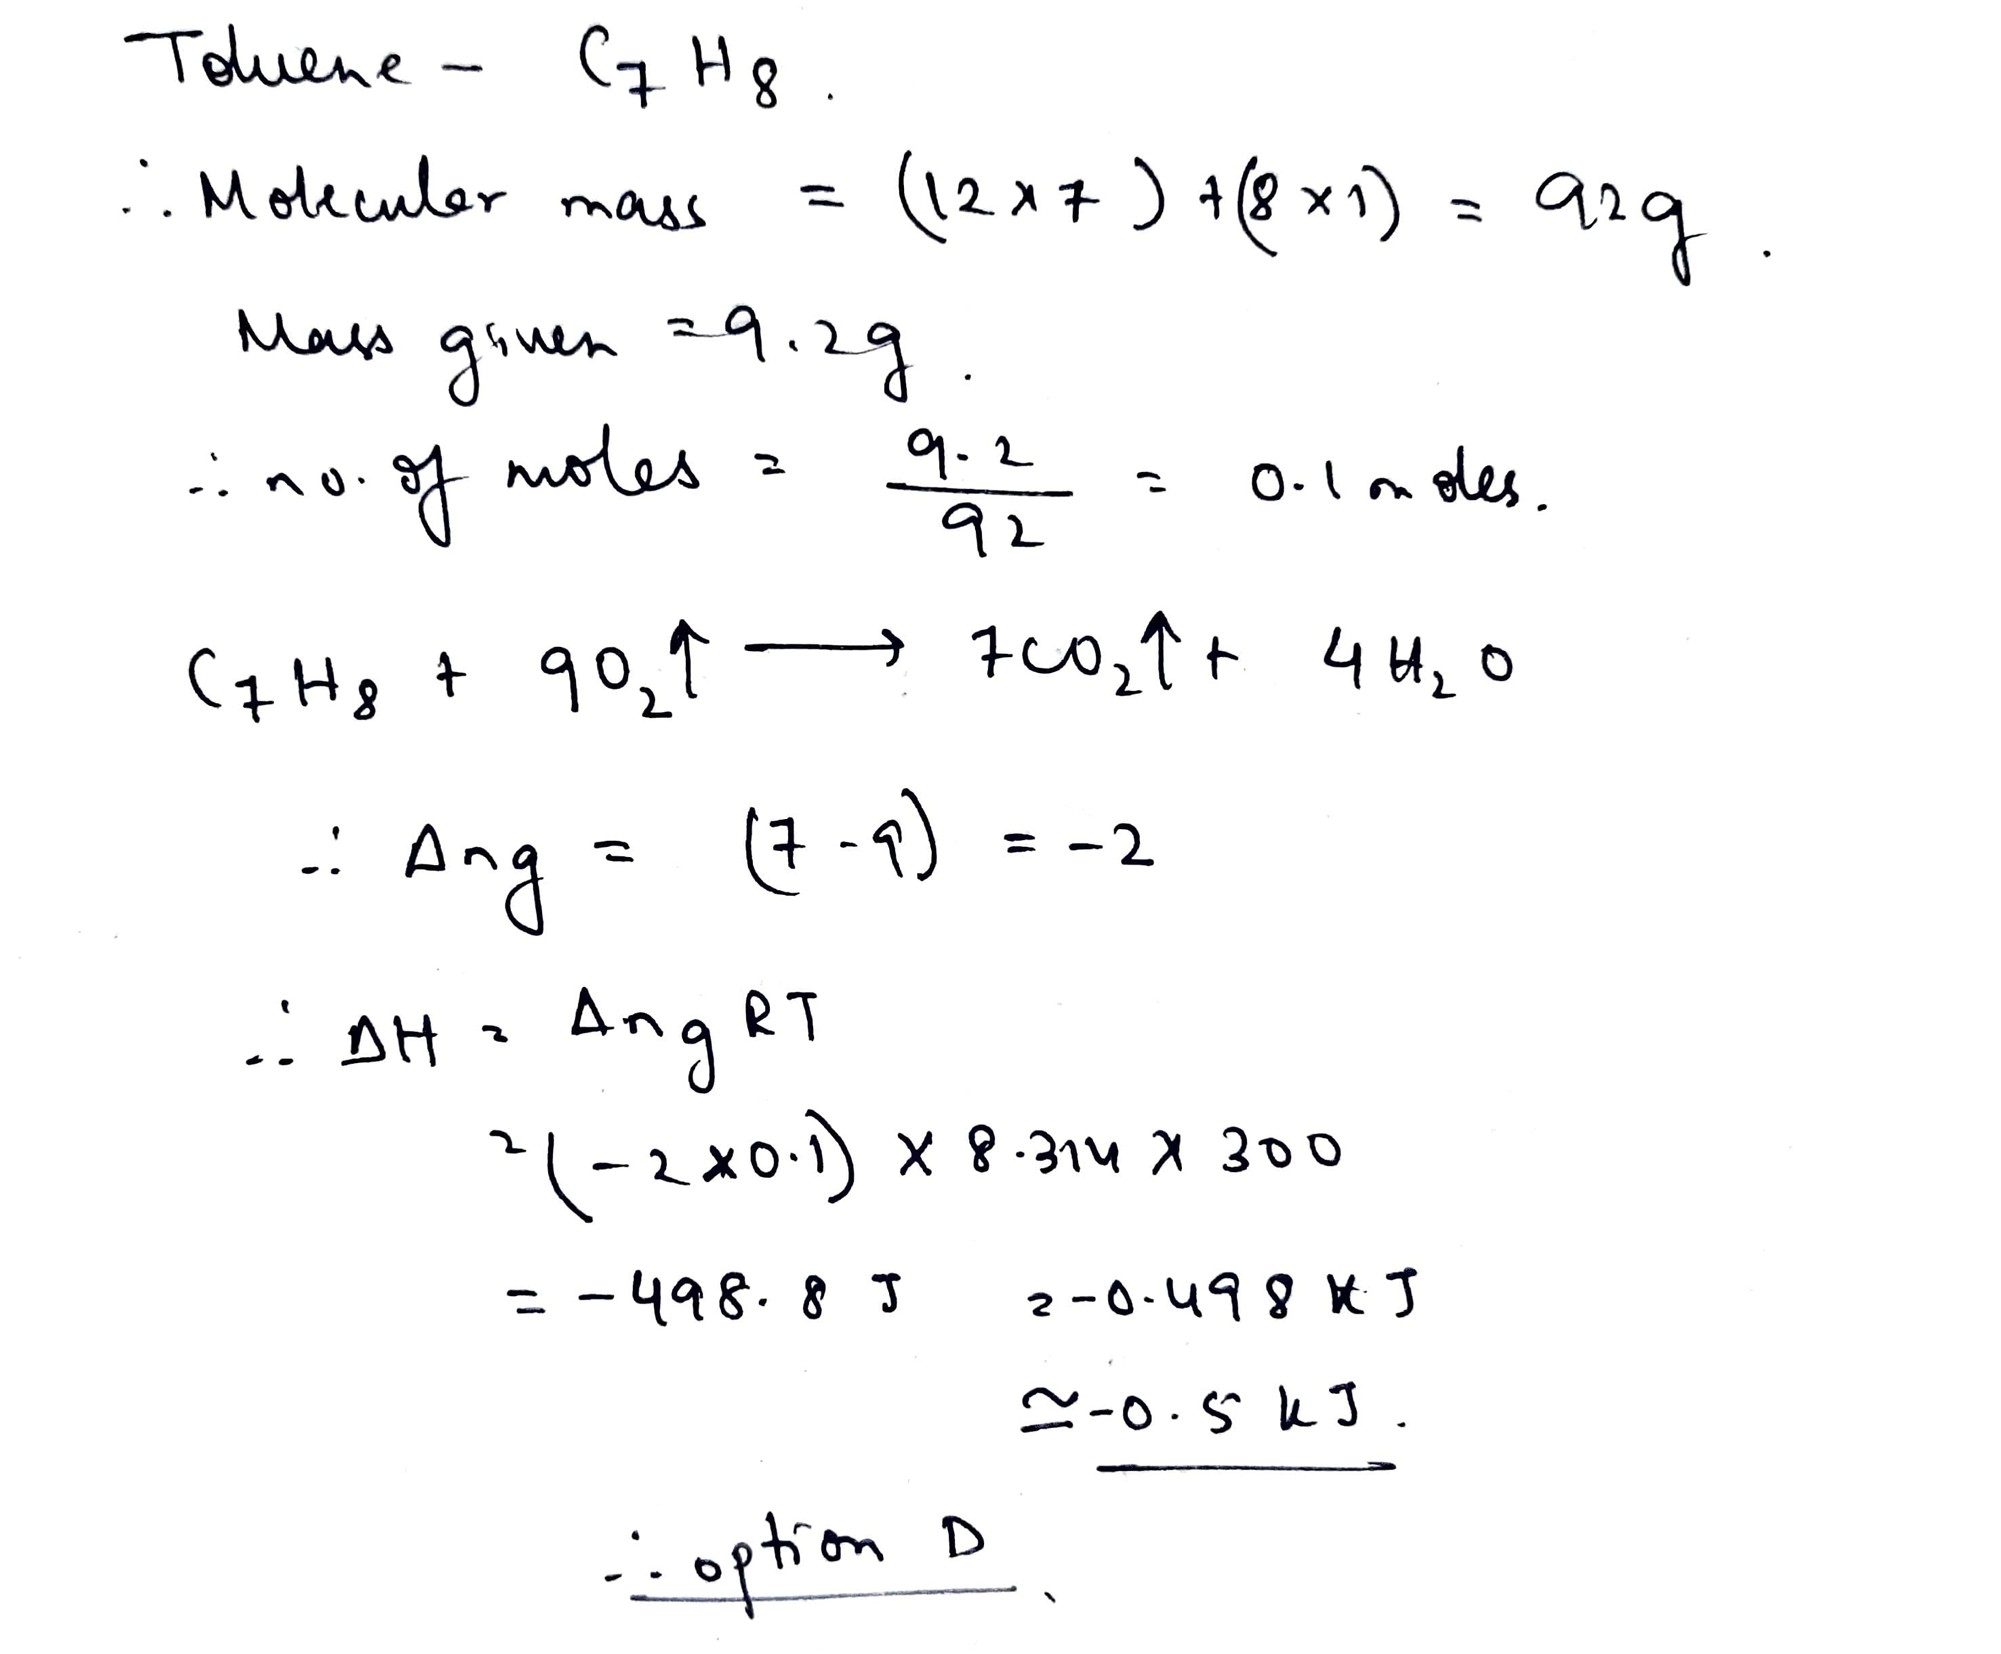 Toluene - C7H8.
∴ Molecular mass = (12×7) + (8×1) = 92g.
Mass given = 9.2g.
∴ no. of moles = 9.2/92 = 0.1 moles.
C7H8 + 9O2↑ → 7CO2↑ + 4H2O
∴ Δng = (7-9) = -2
∴ ΔH = Δng RT
= (-2×0.1) × 8.314 × 300
= -498.8 J = -0.498 KJ
≃ -0.5 kJ.
∴ option D.